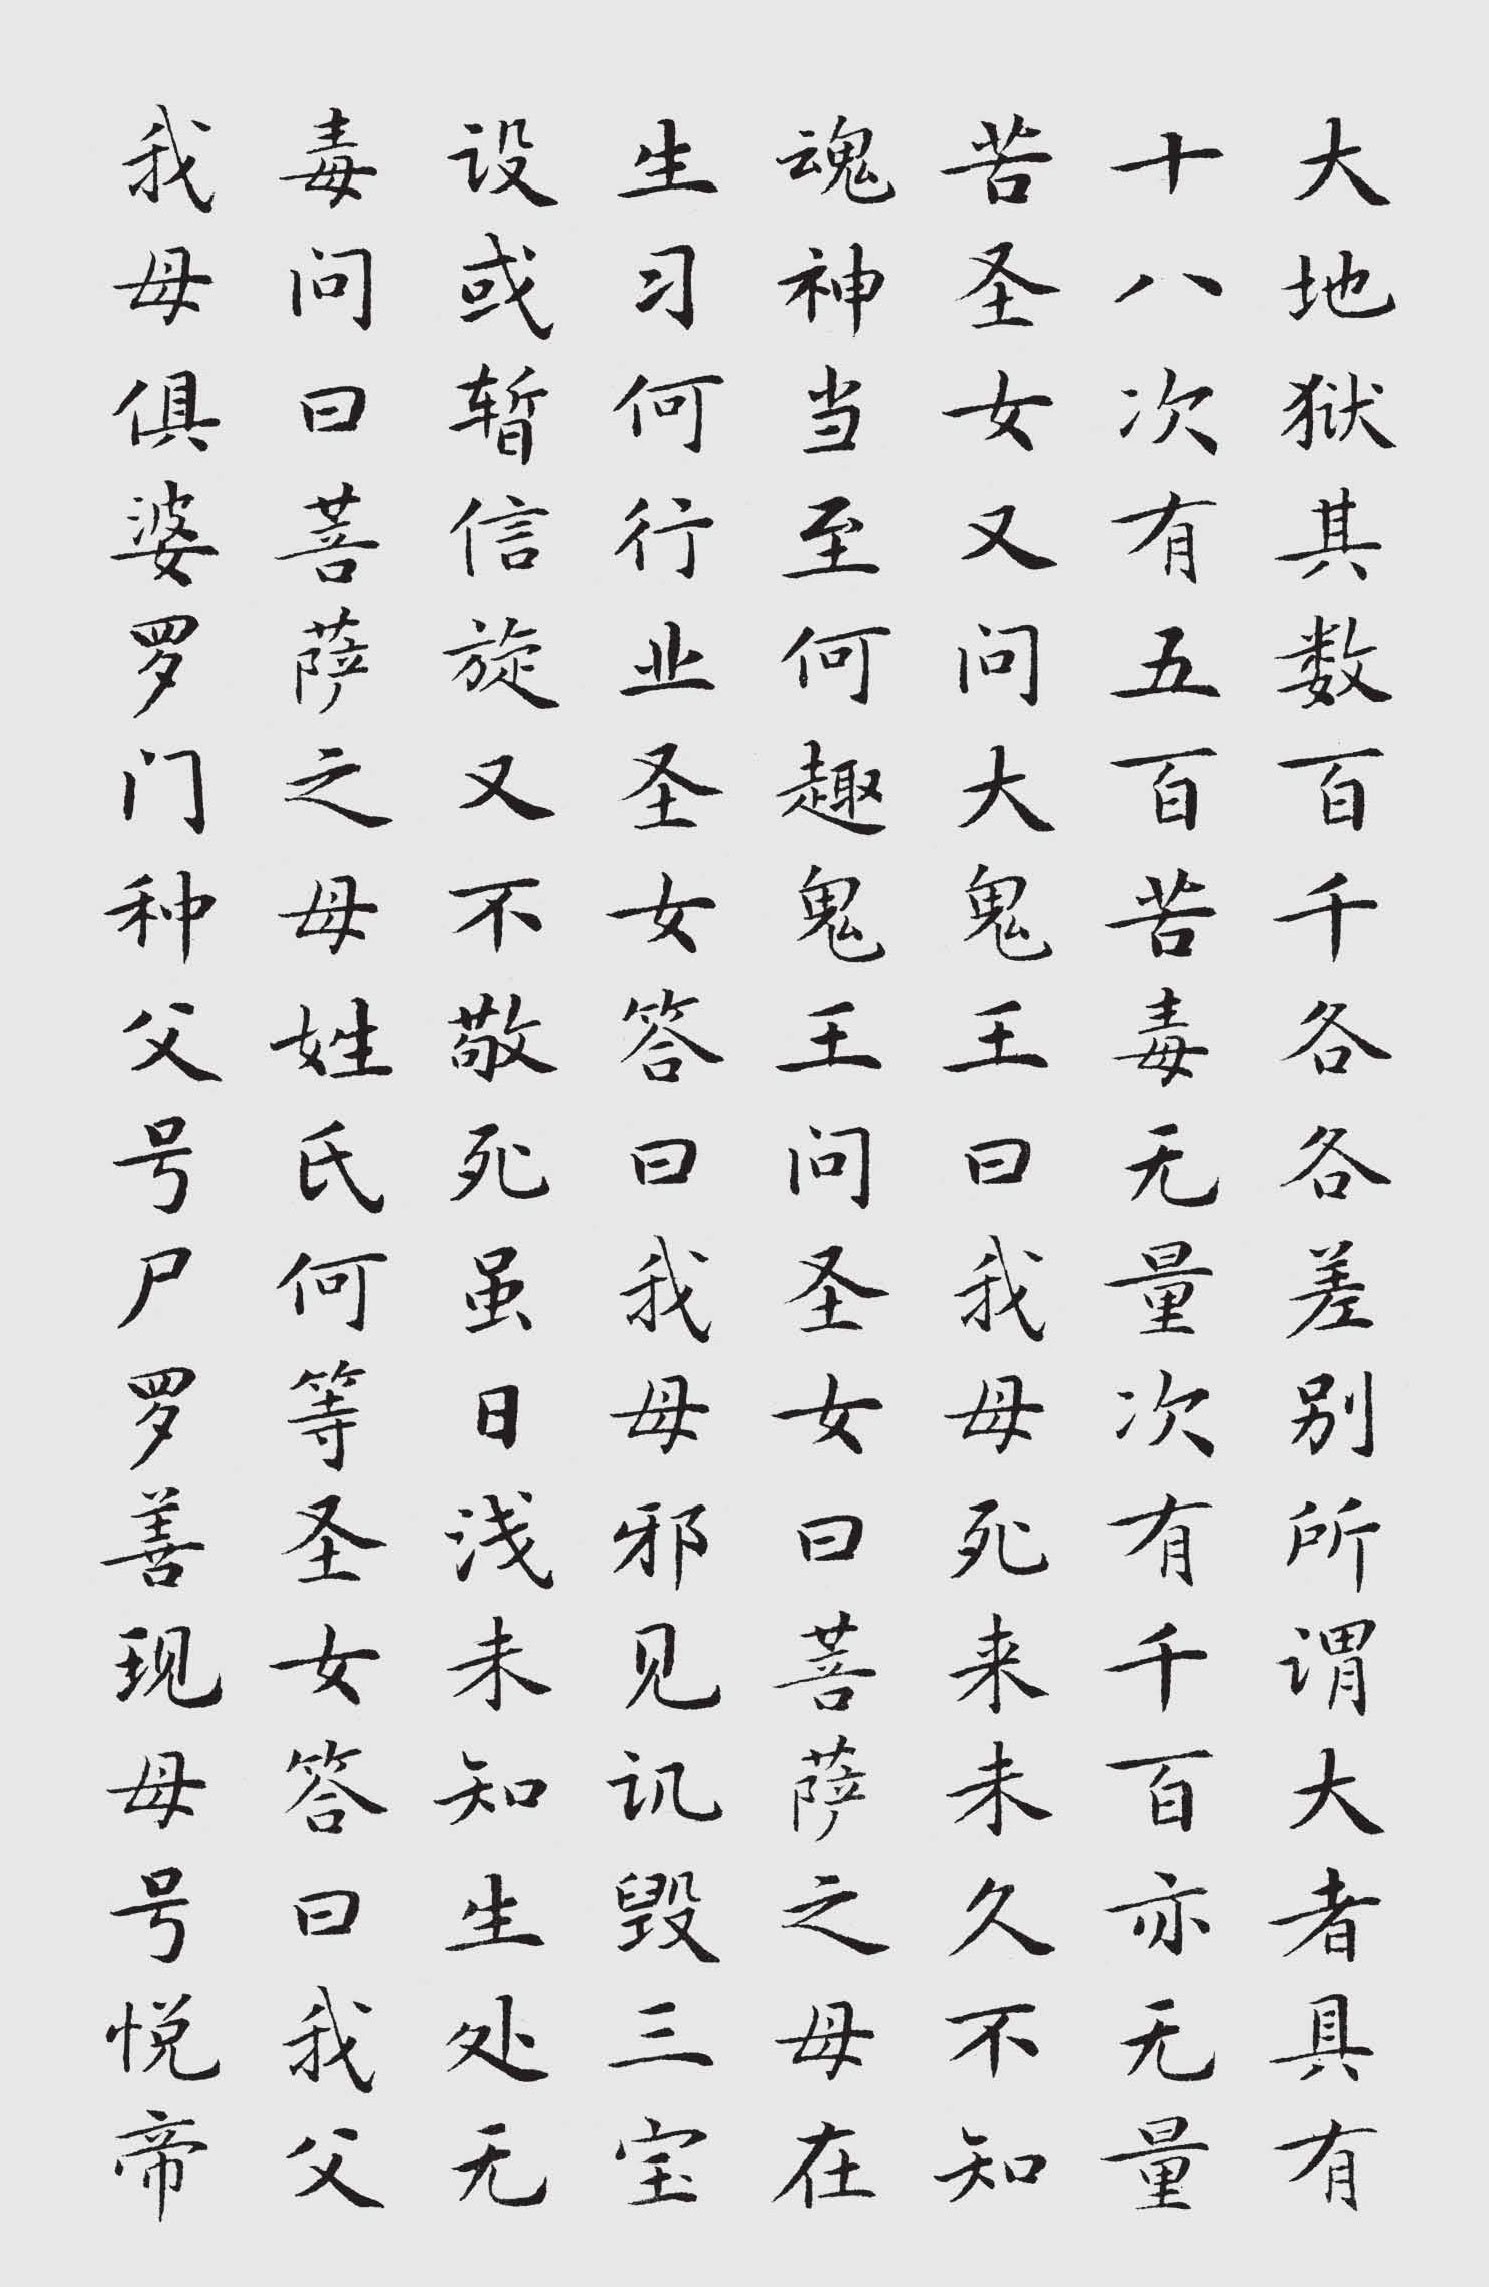 大地狱其数百千各各差别所谓大者具有
十八次有五百苦毒无量次有千百亦无量
苦圣女又问大鬼王曰我母死来未久不知
魂神当至何趣鬼王问圣女曰菩萨之母在
生习何行业圣女答曰我母邪见讥毁三宝
设或暂信旋又不敬死虽日浅未知生处无
毒问曰菩萨之母姓氏何等圣女答曰我父
我母俱婆罗门种父号尸罗善现母号悦帝